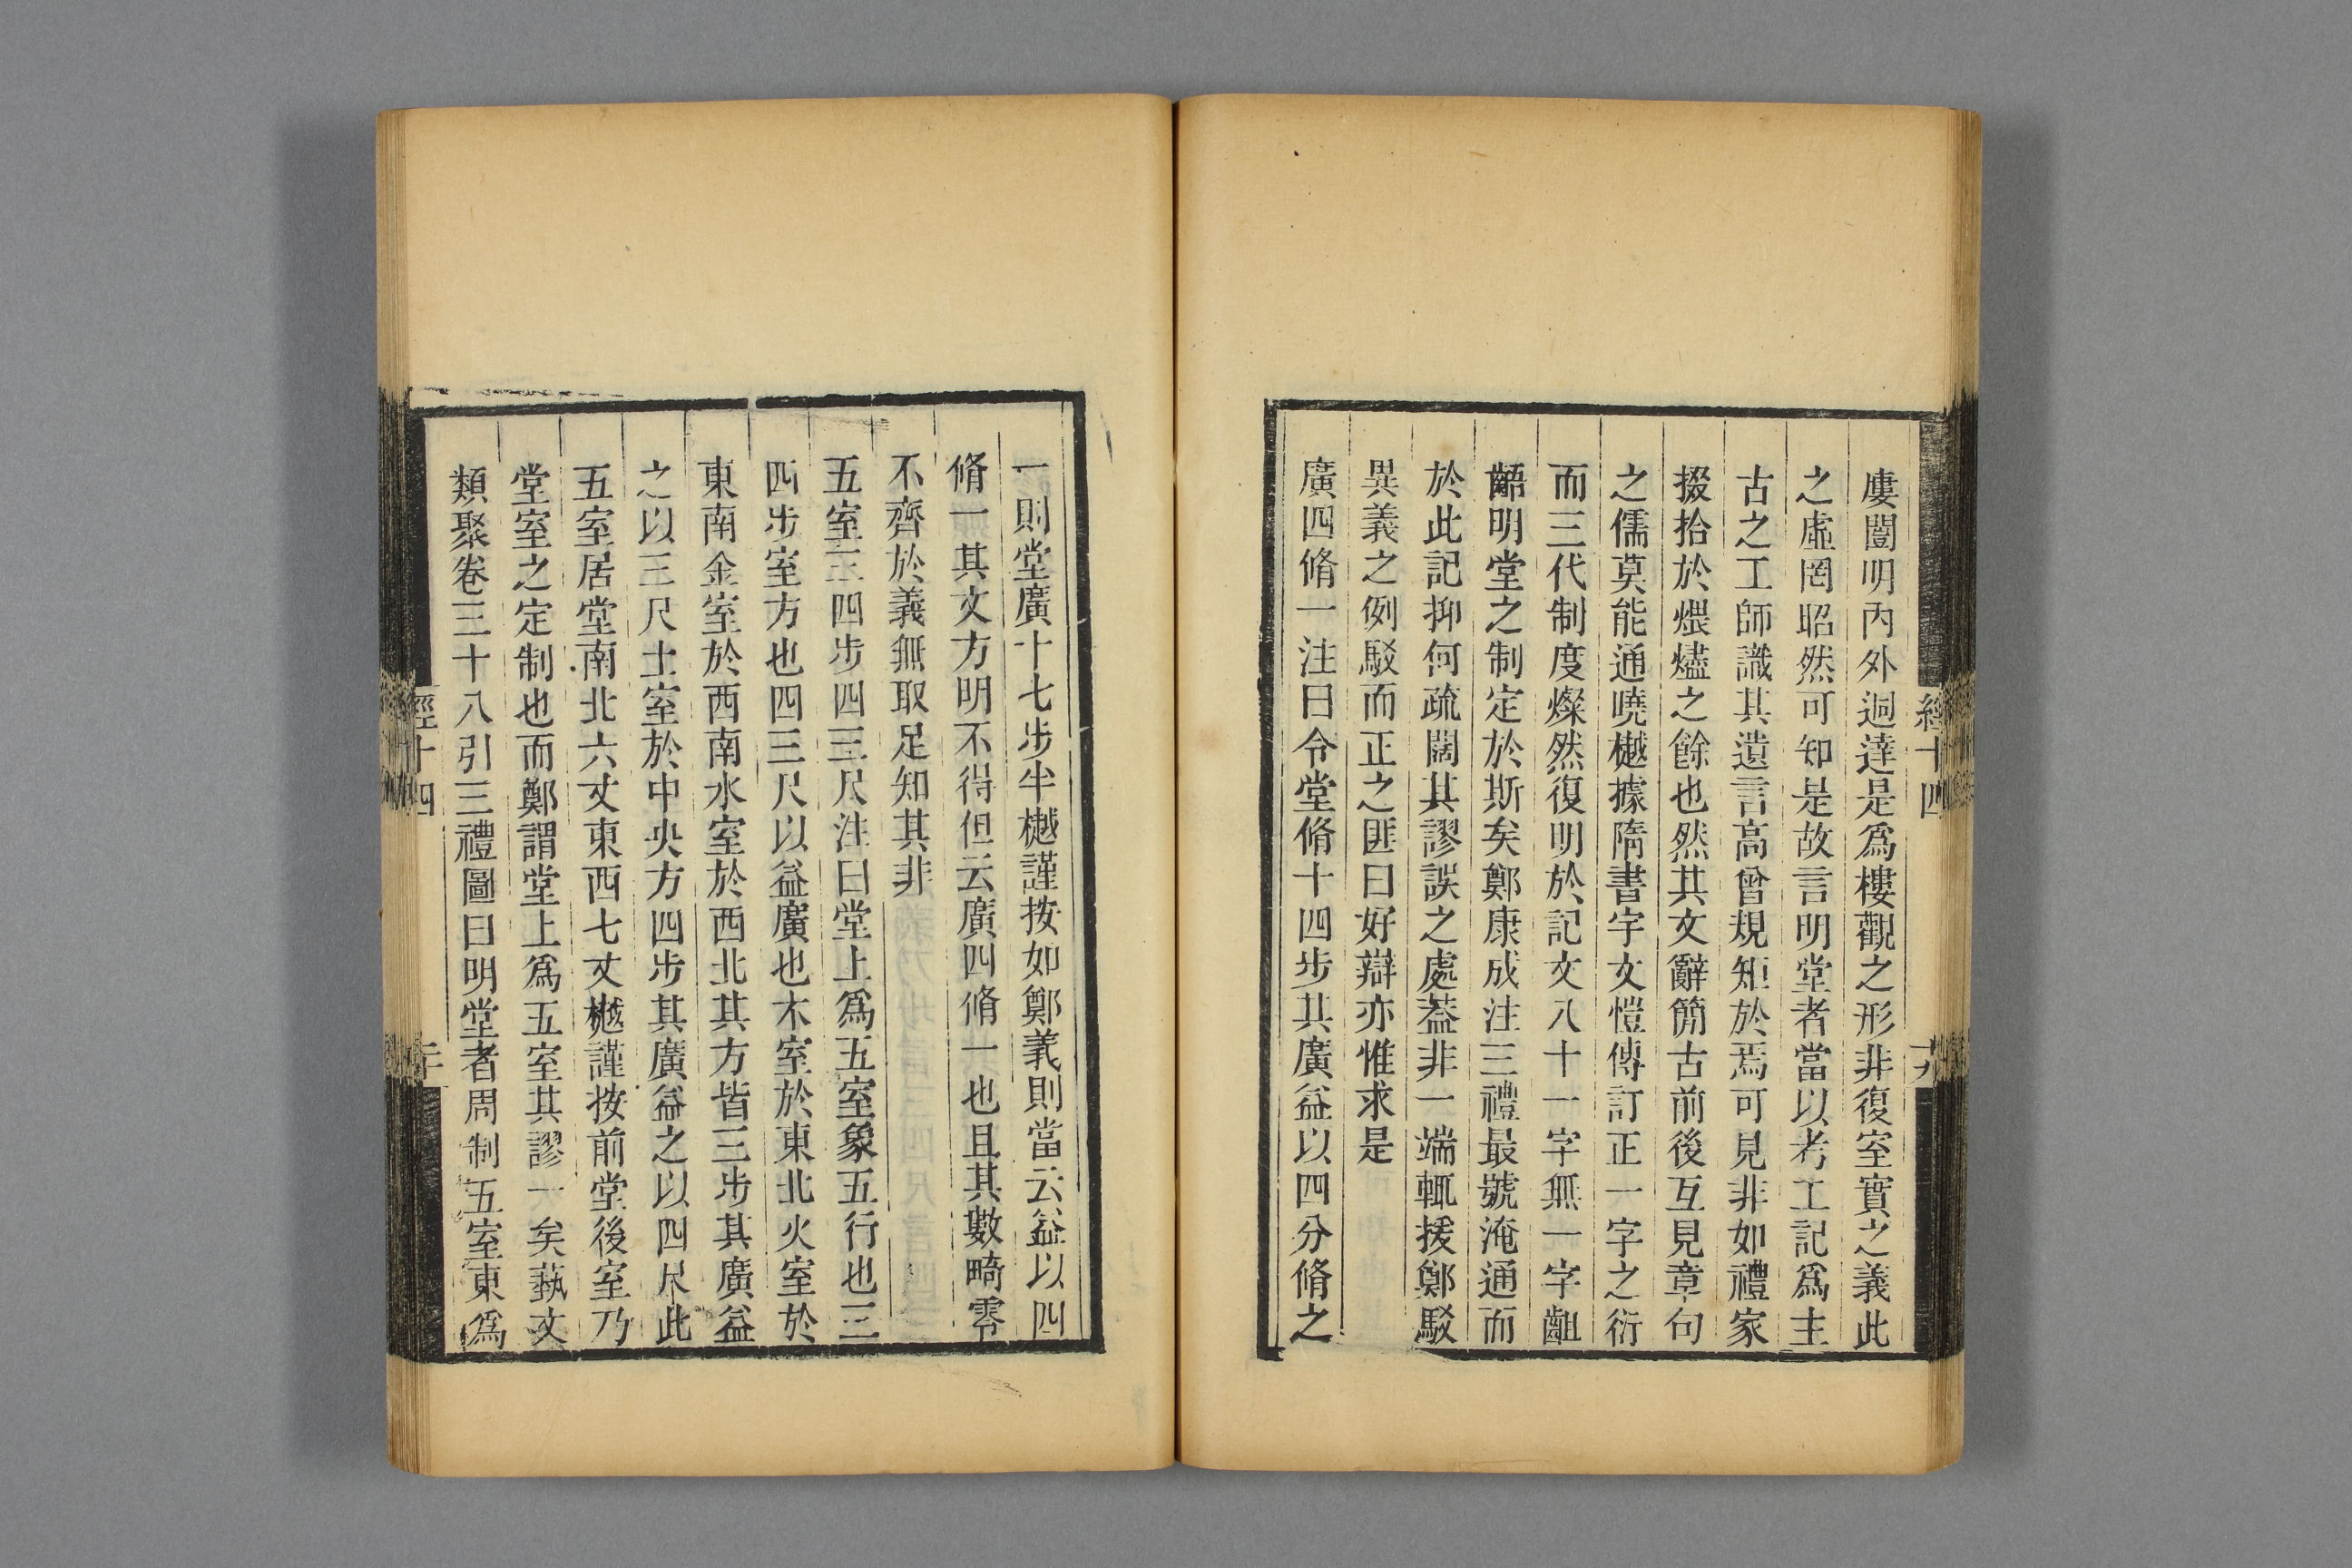 廔闓明內外迵達是爲樓觀之形非復室實之義此
之虛罔昭然可知是故言明堂者當以考工記爲主
古之工師識其遺言高曾規矩於焉可見非如禮家
掇拾於煨燼之餘也然其文辭簡古前後互見章句
之儒莫能通曉樾據隋書宇文愷傳訂正一字之衍
而三代制度燦然復明於記文八十一字無一字齟
齬明堂之制定於斯矣鄭康成注三禮最號淹通而
於此記抑何疏闊其謬誤之處葢非一端輒援鄭駁
異義之例駁而正之匪曰好辯亦惟求是
廣四脩一注曰令堂脩十四步其廣益以四分脩之
經十四
十九
一則堂廣十七步半樾謹按如鄭義則當云益以四
脩一其文方明不得但云廣四脩一也且其數畸零
不齊於義無取足知其非
五室三四步四三尺注曰堂上爲五室象五行也三
四步室方也四三尺以益廣也木室於東北火室於
東南金室於西南水室於西北其方皆三步其廣益
之以三尺土室於中央方四步其廣益之以四尺此
五室居堂南北六丈東西七丈樾謹按前堂後室乃
堂室之定制也而鄭謂堂上爲五室其謬一矣藝文
類聚卷三十八引三禮圖曰明堂者周制五室東爲
經十四
二十